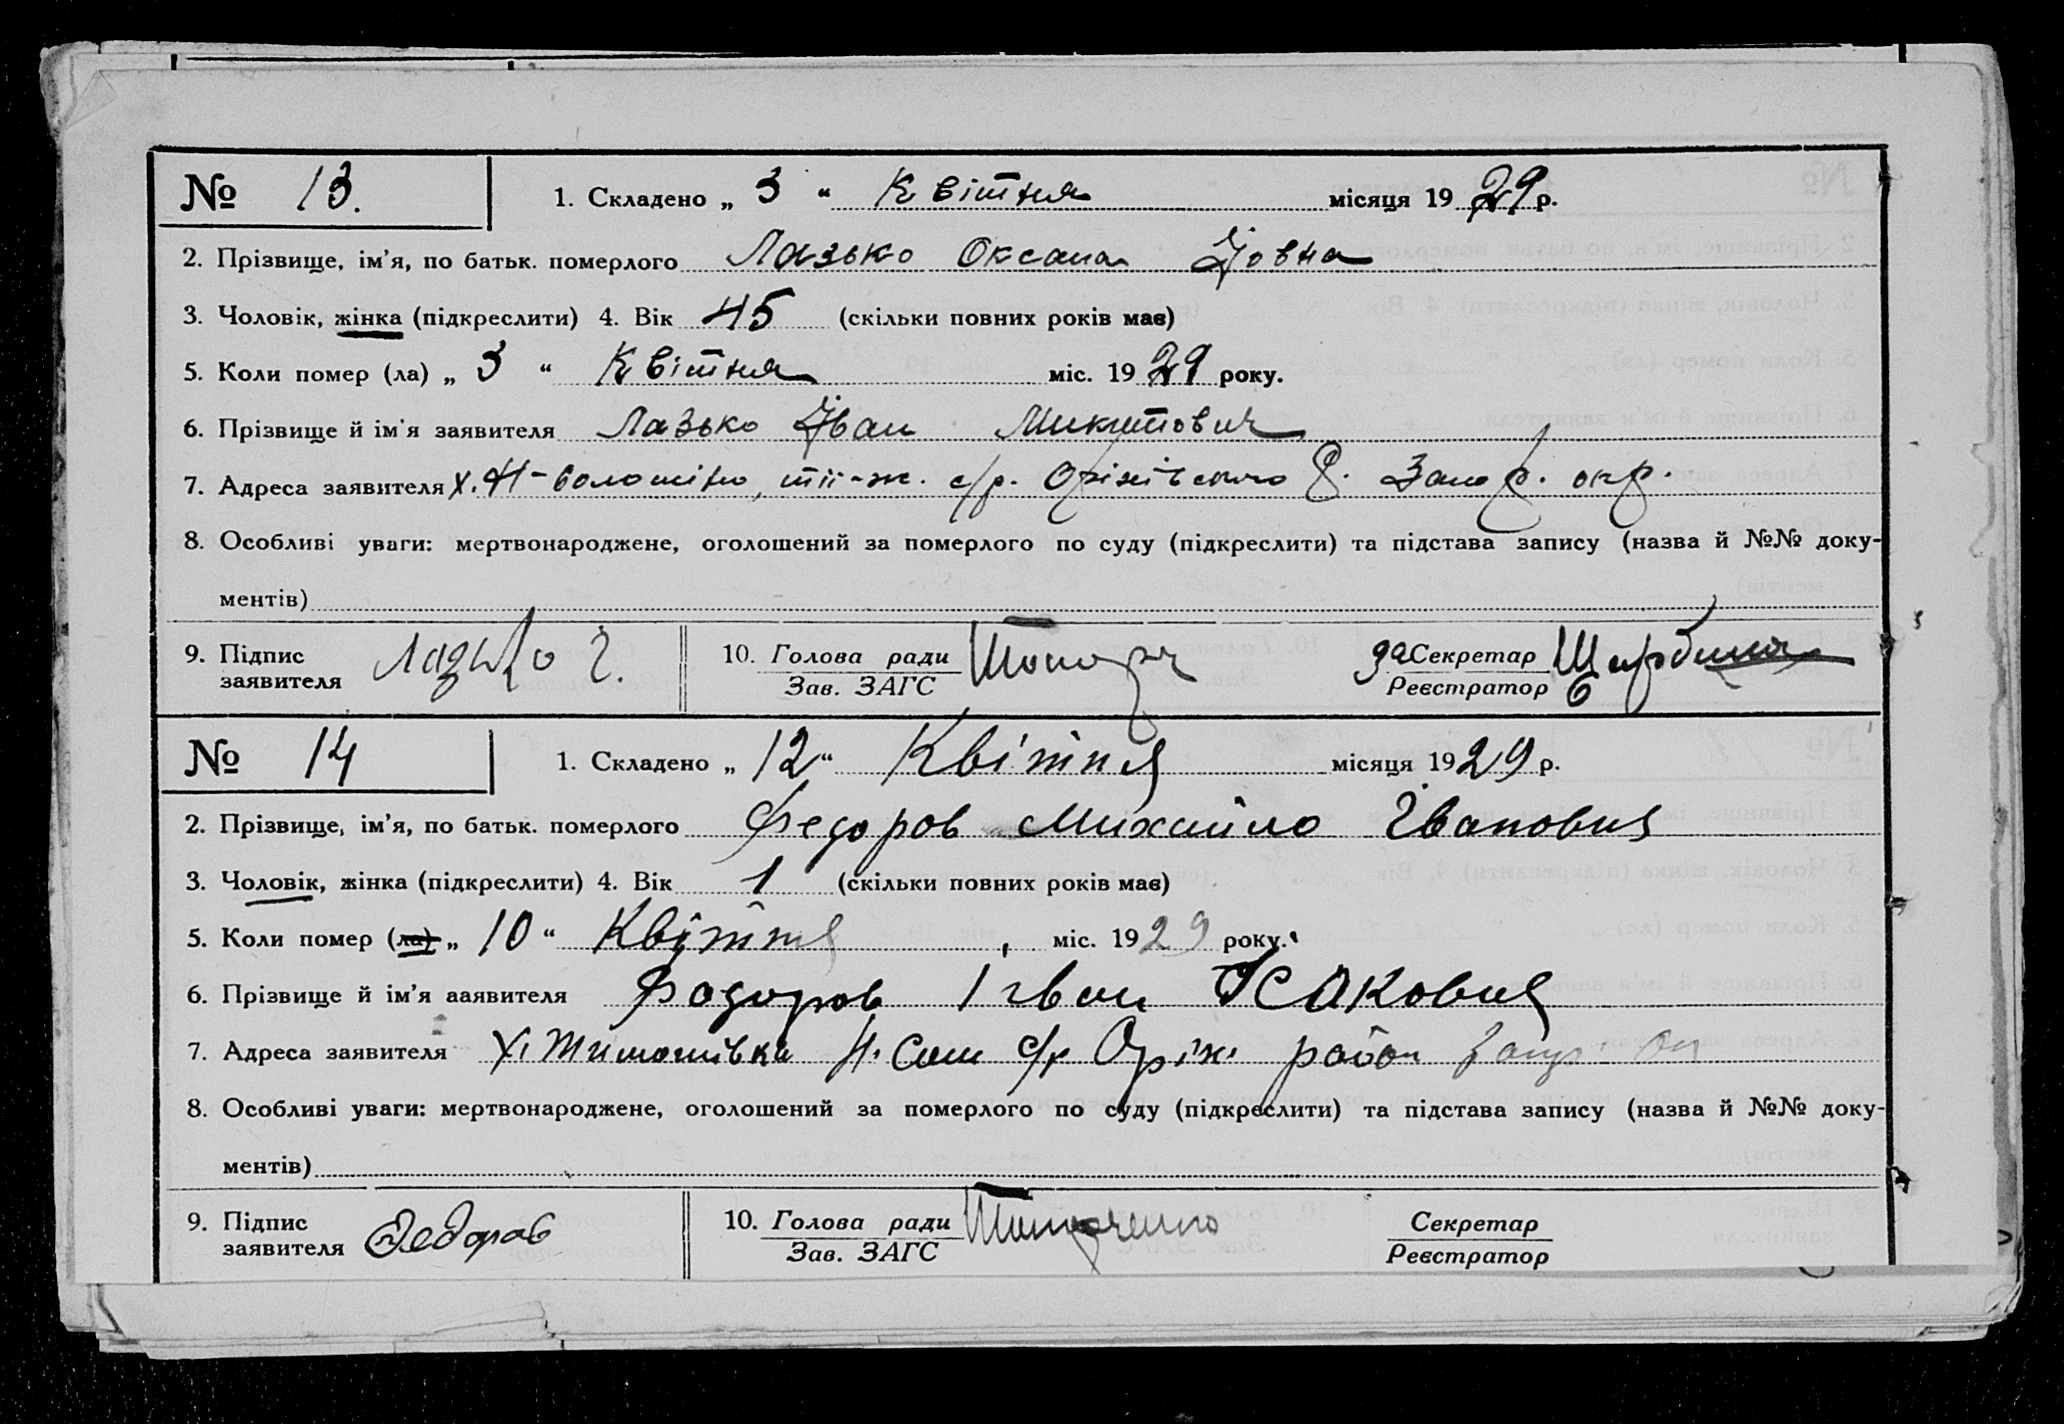 № 13. 1. Складено „ 3 “ Квітня місяця 1929 р.
2. Прізвище, ім'я, по батьк. померлого Лазько Оксана Йовна
3. Чоловік, жінка (підкреслити) 4. Вік 45 (скільки повних років має)
5. Коли помер (ла) „ 3 “ Квітня міс. 1929 року.
6. Прізвище й ім'я заявителя Лазько Іван Микитович
7. Адреса заявителя х. с/р. Оріхівського Р. Запор. окр.
8. Особливі уваги: мертвонароджене, оголошений за померлого по суду (підкреслити) та підстава запису (назва й №№ доку-
ментів)
9. Підпис заявителя Лазько І. 10. Голова ради Зав. ЗАГС за Секретар Реєстратор
№ 14 1. Складено „ 12 “ Квітня місяця 1929 р.
2. Прізвище, ім'я, по батьк. померлого Федоров Михайло Іванович
3. Чоловік, жінка (підкреслити) 4. Вік 1 (скільки повних років має)
5. Коли помер (ла) „ 10 “ Квітня міс. 1929 року.
6. Прізвище й ім'я ааявителя Федоров Іван Ісакович
7. Адреса заявителя х. Тимошівка с/р Оріх. район
8. Особливі уваги: мертвонароджене, оголошений за померлого по суду (підкреслити) та підстава запису (назва й №№ доку-
ментів)
9. Підпис заявителя Федоров 10. Голова ради Зав. ЗАГС Секретар Реєстратор